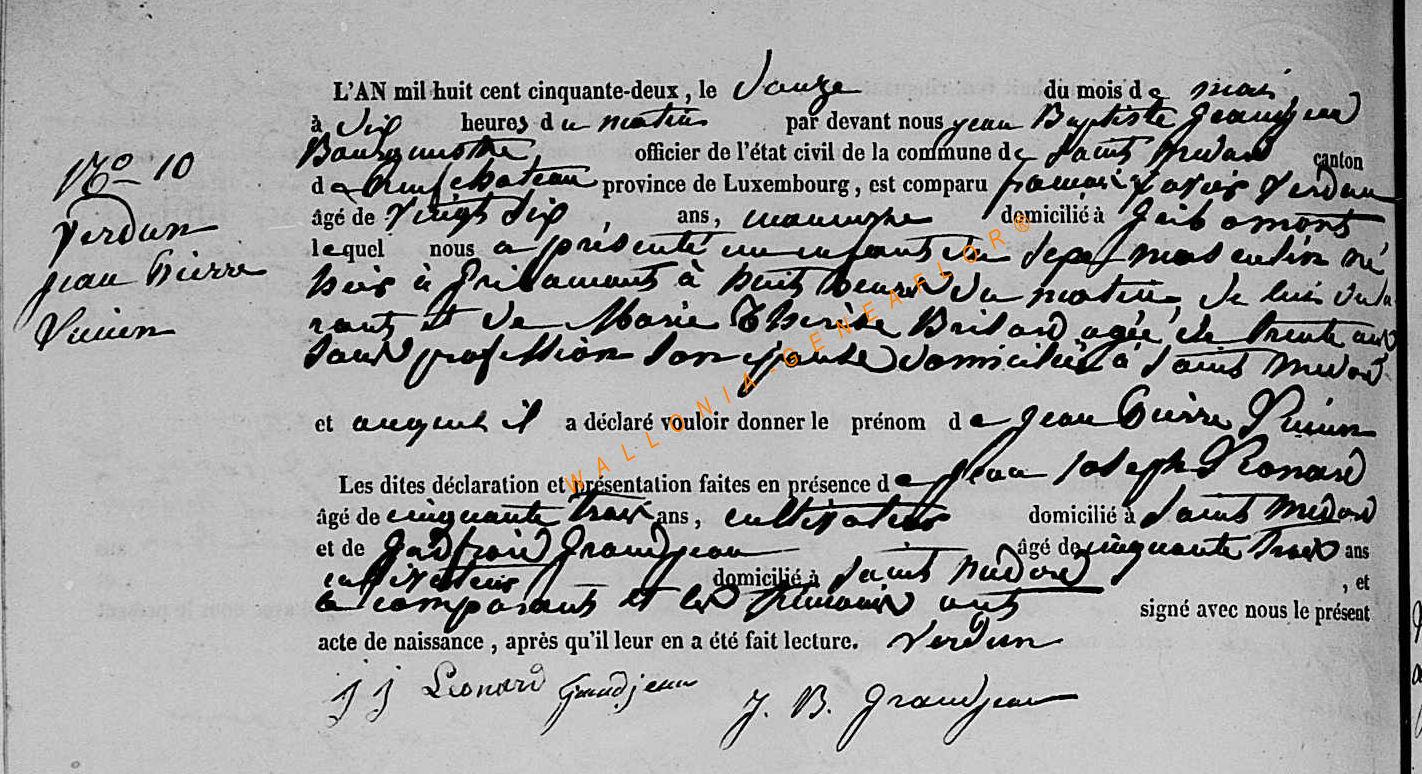 L'AN mil huit cent cinquante-deux, le douze du mois de mai
à dix heures du matin par devant nous jean Baptiste Grandjean
Bourgmestre officier de l'état civil de la commune de Saint Médard canton
de Neufchateau province de Luxembourg, est comparu francois Xavier Verdun
âgé de Vingt dix ans, domicilié à
lequel nous a présenté un enfant du sexe masculin né
hier à à huit heures du matin, de lui décla
rant et de Marie Thérèse agée de trente ans
sans profession son epouse domiciliée à Saint Medard
et auquel il a déclaré vouloir donner le prénom de jean Pierre
Les dites déclaration et présentation faites en présence de jean joseph Léonard
âgé de cinquante trois ans, cultivateur domicilié à Saint Medard
et de Grandjean âgé de cinquante trois ans
cultivateur domicilié à Saint Medard, et
le comparant et les témoins ont signé avec nous le présent
acte de naissance, après qu'il leur en a été fait lecture. Verdun
j j Léonard Grandjean J. B. Grandjean
No 10
Verdun
jean Pierre
WALLONIA-GENEAFLOR®